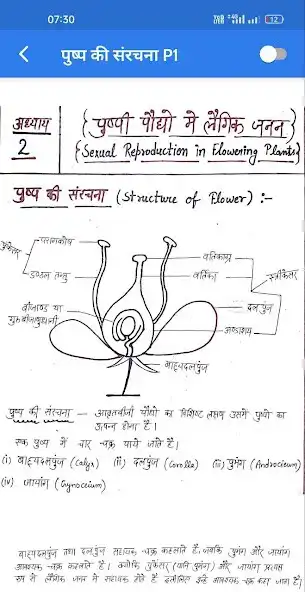 07:30
12
पुष्प की संरचना P1
अध्याय
2
{ पुष्पी पौधो मे लैंगिक जनन }
{ Sexual Reproduction in Flowering Plants }
पुष्प की संरचना (Structure of Flower) :-
परागकोष
पुंकेसर
डण्ठल तन्तु
बीजाण्ड या
वर्तिकाग्र
वर्तिका
स्त्रीकेसर
दल पुंज
अण्डाशय
बाह्यदलपुंज
पुष्प की संरचना - आवृतबीजी पौधो का विशिष्ट लक्षण उसमें पुष्पो का
होना है।
एक पुष्प में चार चक्र पाये जाते है।
(i) बाह्यदलपुंज (Calyx) (ii) दलपुंज (Corolla) (iii) पुमंग (Androecium)
(iv) जायांग (Gynoecium)
बाह्यदलपुंज तथा दलपुंज सहायक चक्र कहलाते है, जबकि पुमंग और जायांग
आवश्यक चक्र कहलाते है। क्योंकि पुंकेसर (यानि पुमंग) और जायांग प्रत्यक्ष
रूप मे लैंगिक जनन मे सहायक होते है इसीलिए इन्हे आवश्यक चक्र कहा जाता है।